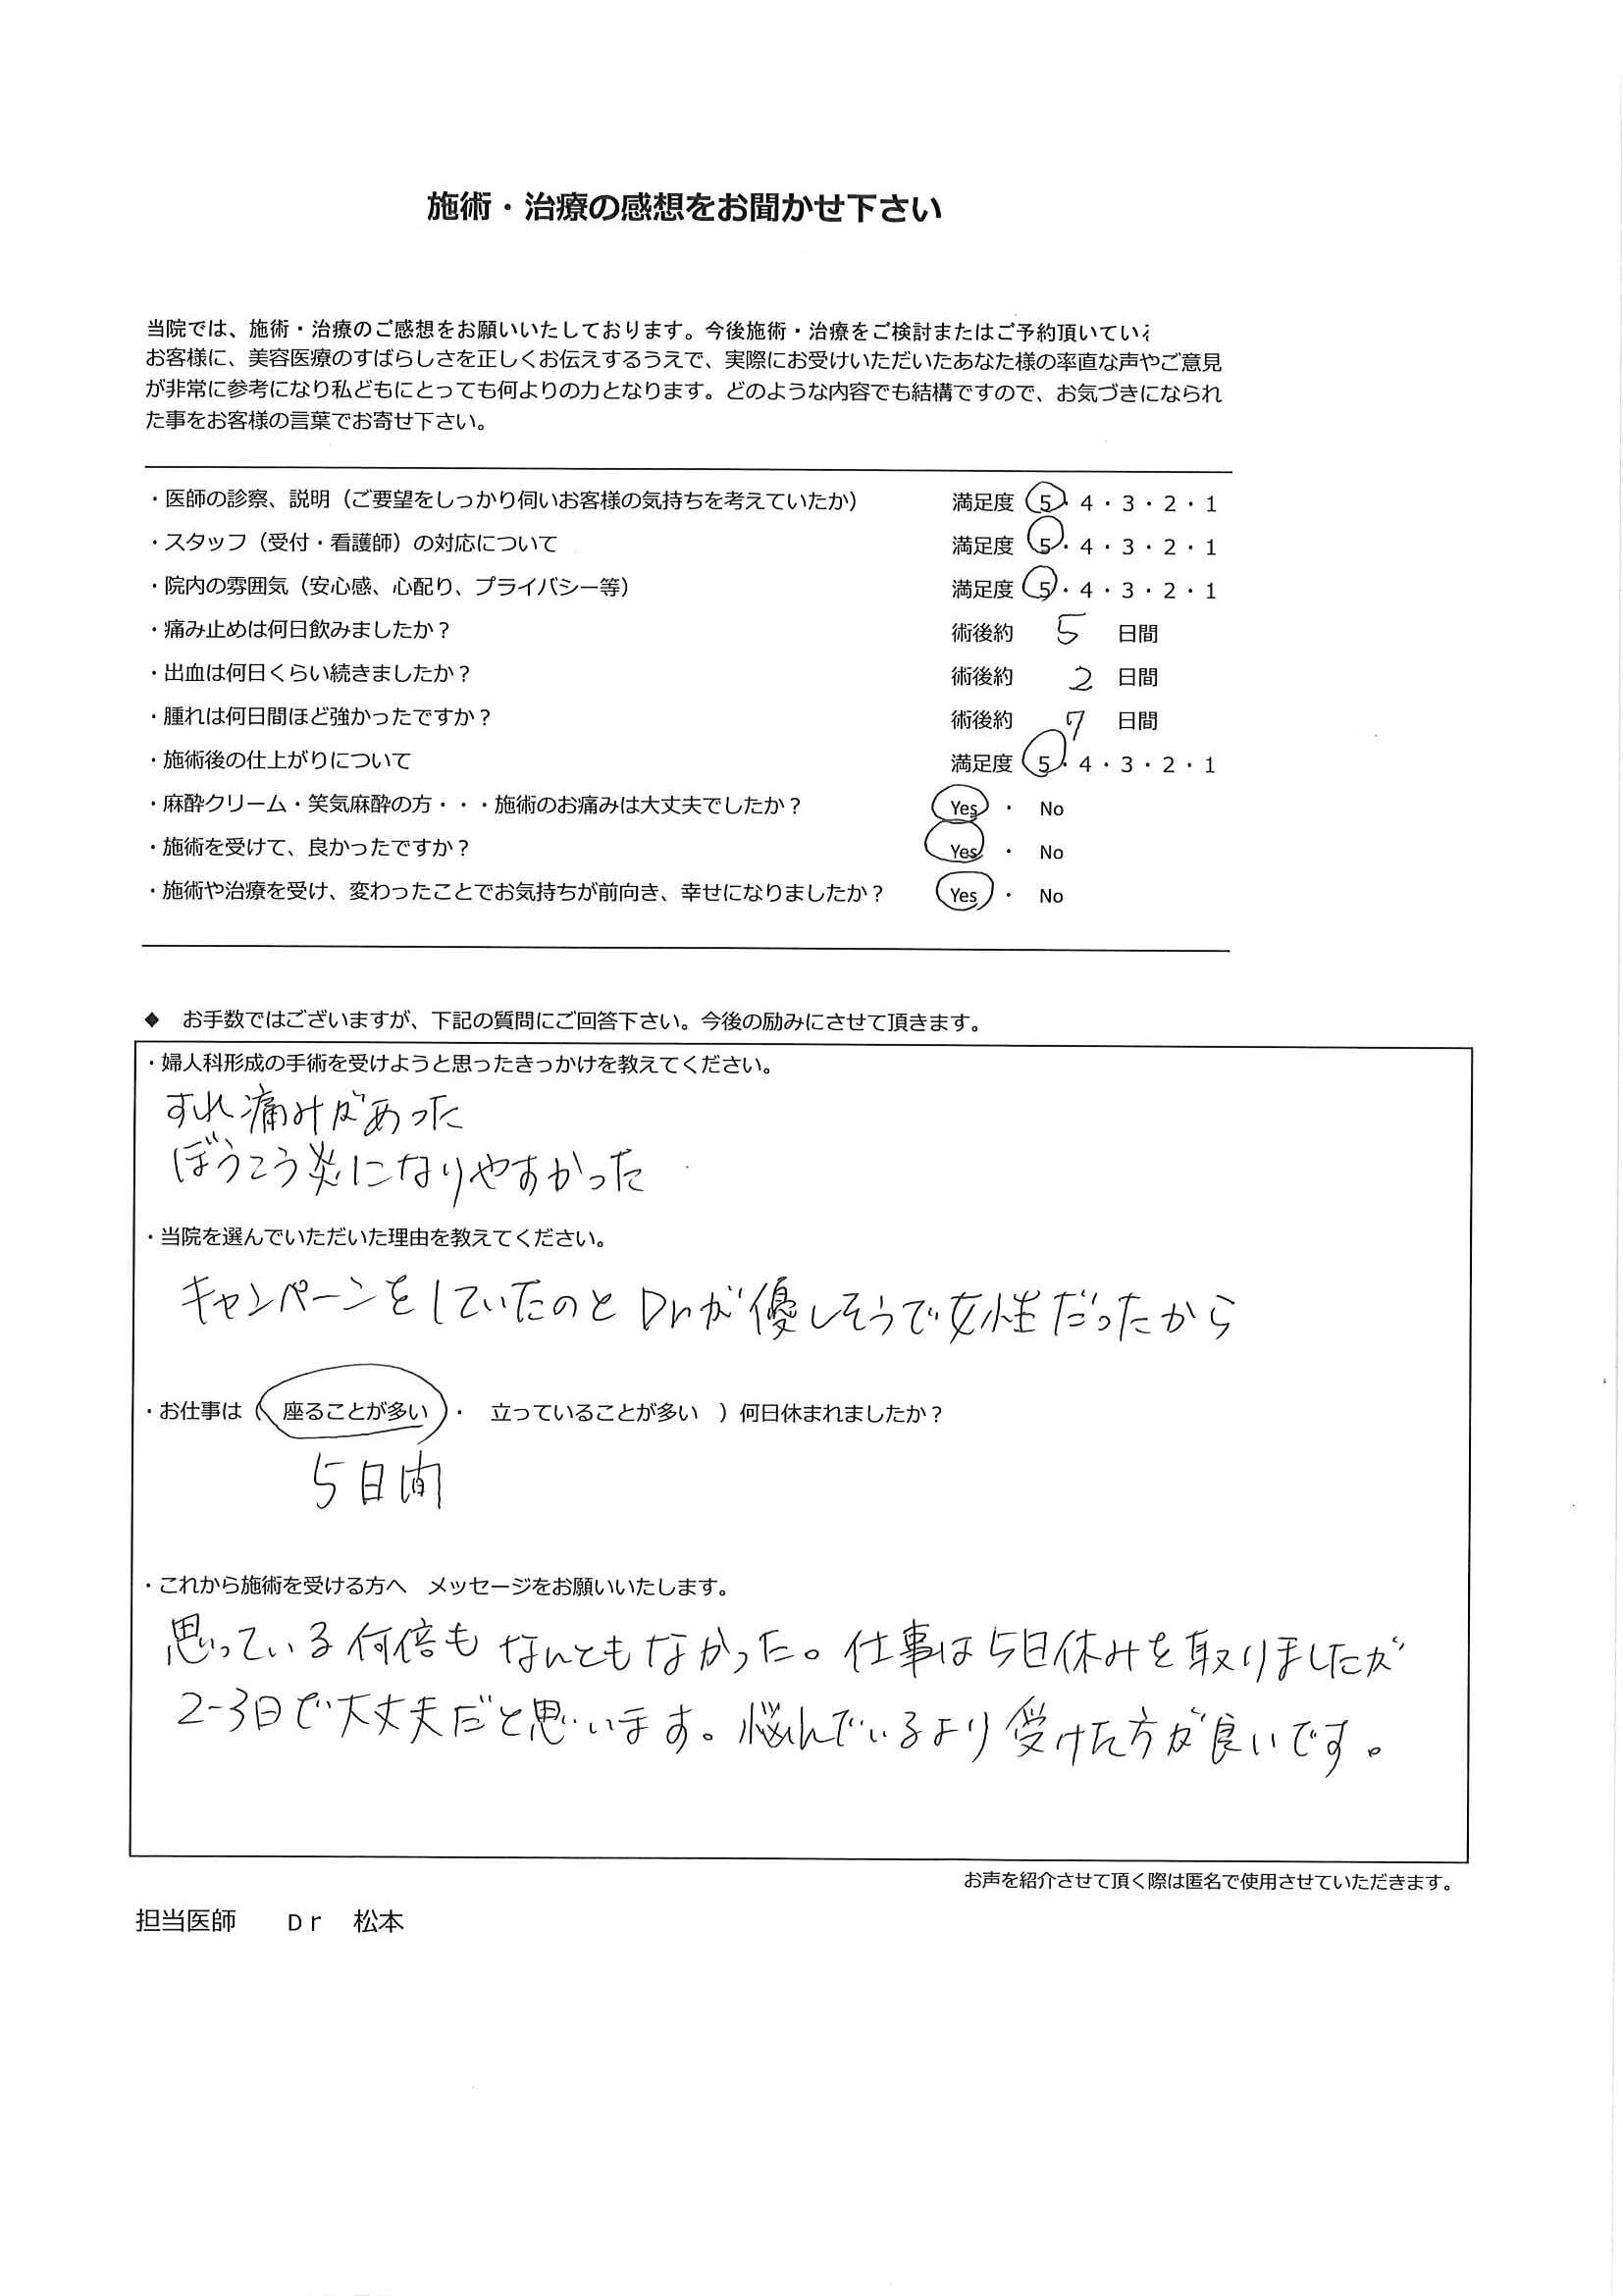 施術・治療の感想をお聞かせ下さい
当院では、施術・治療のご感想をお願いいたしております。今後施術・治療をご検討またはご予約頂いている
お客様に、美容医療のすばらしさを正しくお伝えするうえで、実際にお受けいただいたあなた様の率直な声やご意見
が非常に参考になり私どもにとっても何よりの力となります。どのような内容でも結構ですので、お気づきになられ
た事をお客様の言葉でお寄せ下さい。
・医師の診察、説明（ご要望をしっかり伺いお客様の気持ちを考えていたか） 満足度 5・4・3・2・1
・スタッフ（受付・看護師）の対応について 満足度 5・4・3・2・1
・院内の雰囲気（安心感、心配り、プライバシー等） 満足度 5・4・3・2・1
・痛み止めは何日飲みましたか？ 術後約 5 日間
・出血は何日くらい続きましたか？ 術後約 2 日間
・腫れは何日間ほど強かったですか？ 術後約 7 日間
・施術後の仕上がりについて 満足度 5・4・3・2・1
・麻酔クリーム・笑気麻酔の方・・・施術のお痛みは大丈夫でしたか？ Yes ・ No
・施術を受けて、良かったですか？ Yes ・ No
・施術や治療を受け、変わったことでお気持ちが前向き、幸せになりましたか？ Yes ・ No
◆ お手数ではございますが、下記の質問にご回答下さい。今後の励みにさせて頂きます。
・婦人科形成の手術を受けようと思ったきっかけを教えてください。
すれ痛みがあった
ぼうこう炎になりやすかった
・当院を選んでいただいた理由を教えてください。
キャンペーンをしていたのとDrが優しそうで女性だったから
・お仕事は（ 座ることが多い ・ 立っていることが多い ）何日休まれましたか？
5日間
・これから施術を受ける方へ メッセージをお願いいたします。
思っている何倍もなんともなかった。仕事は5日休みを取りましたが
2-3日で大丈夫だと思います。悩んでいるより受けた方が良いです。
お声を紹介させて頂く際は匿名で使用させていただきます。
担当医師 Dr 松本